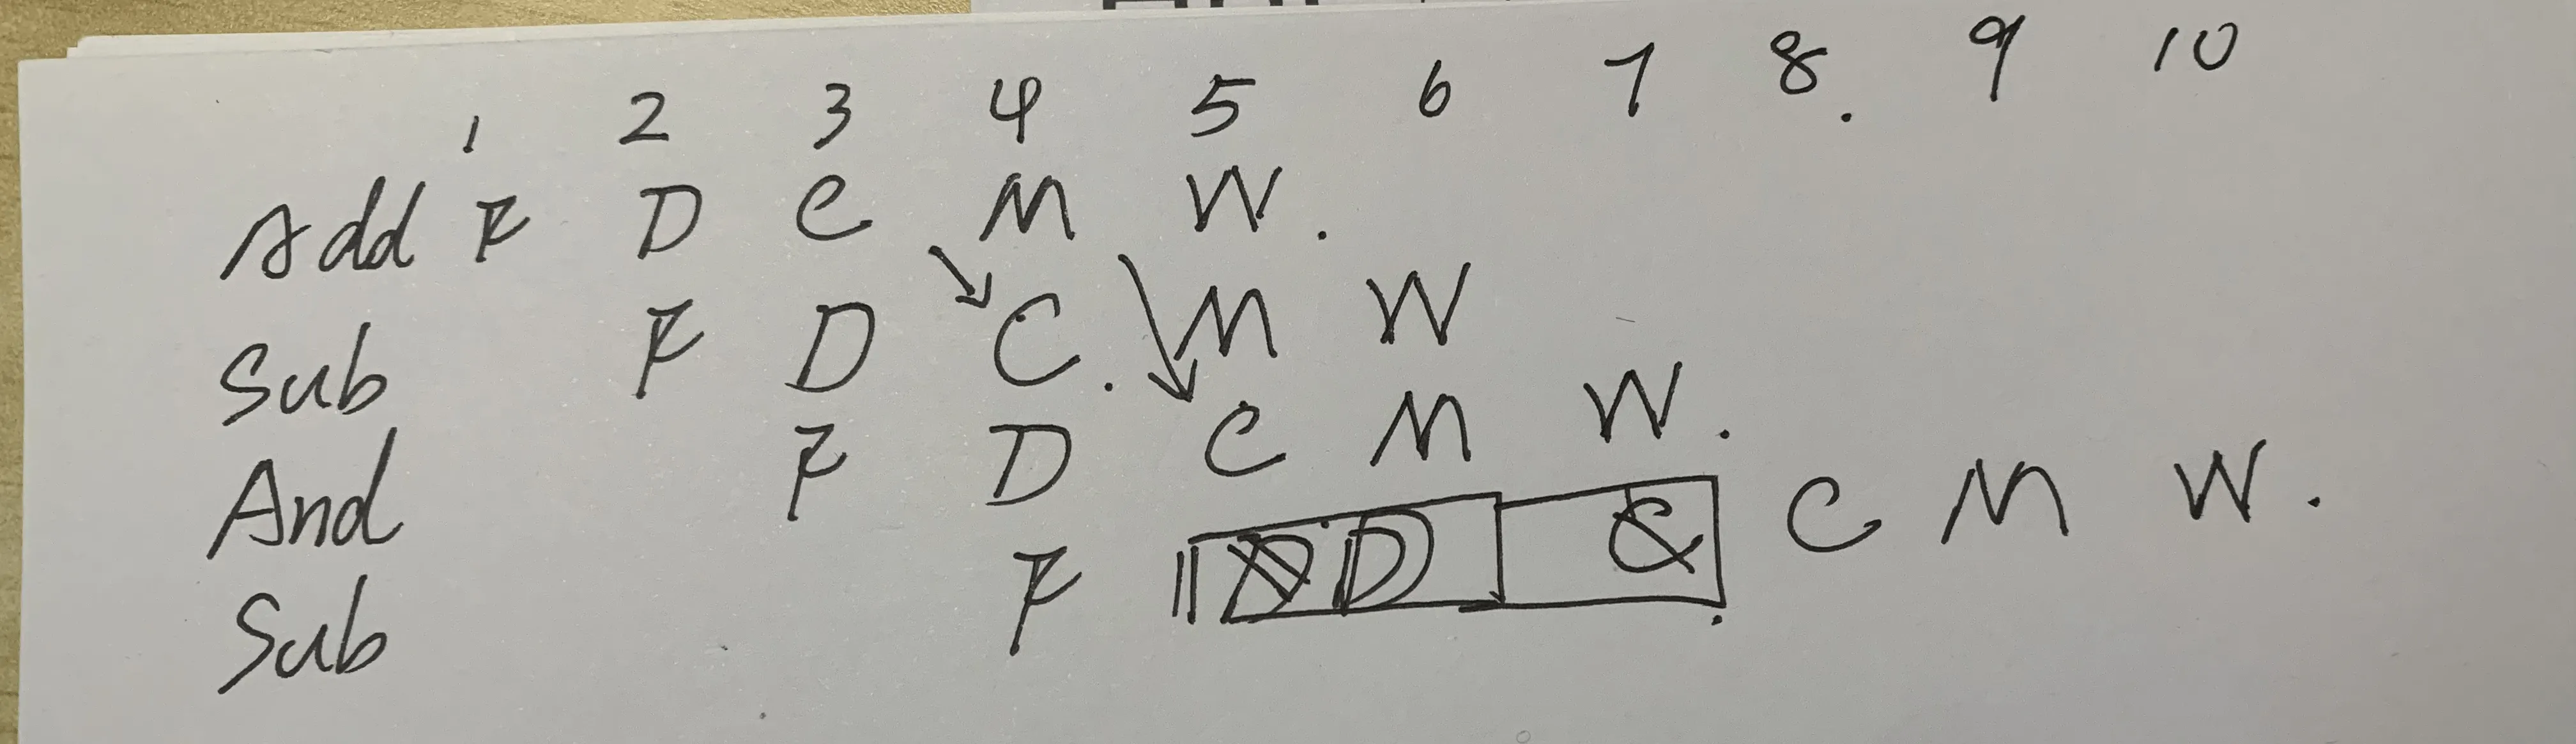 1 2 3 4 5 6 7 8. 9 10
Add F D C M W.
Sub F D C. M W
And F D C M W.
Sub F D C M W.